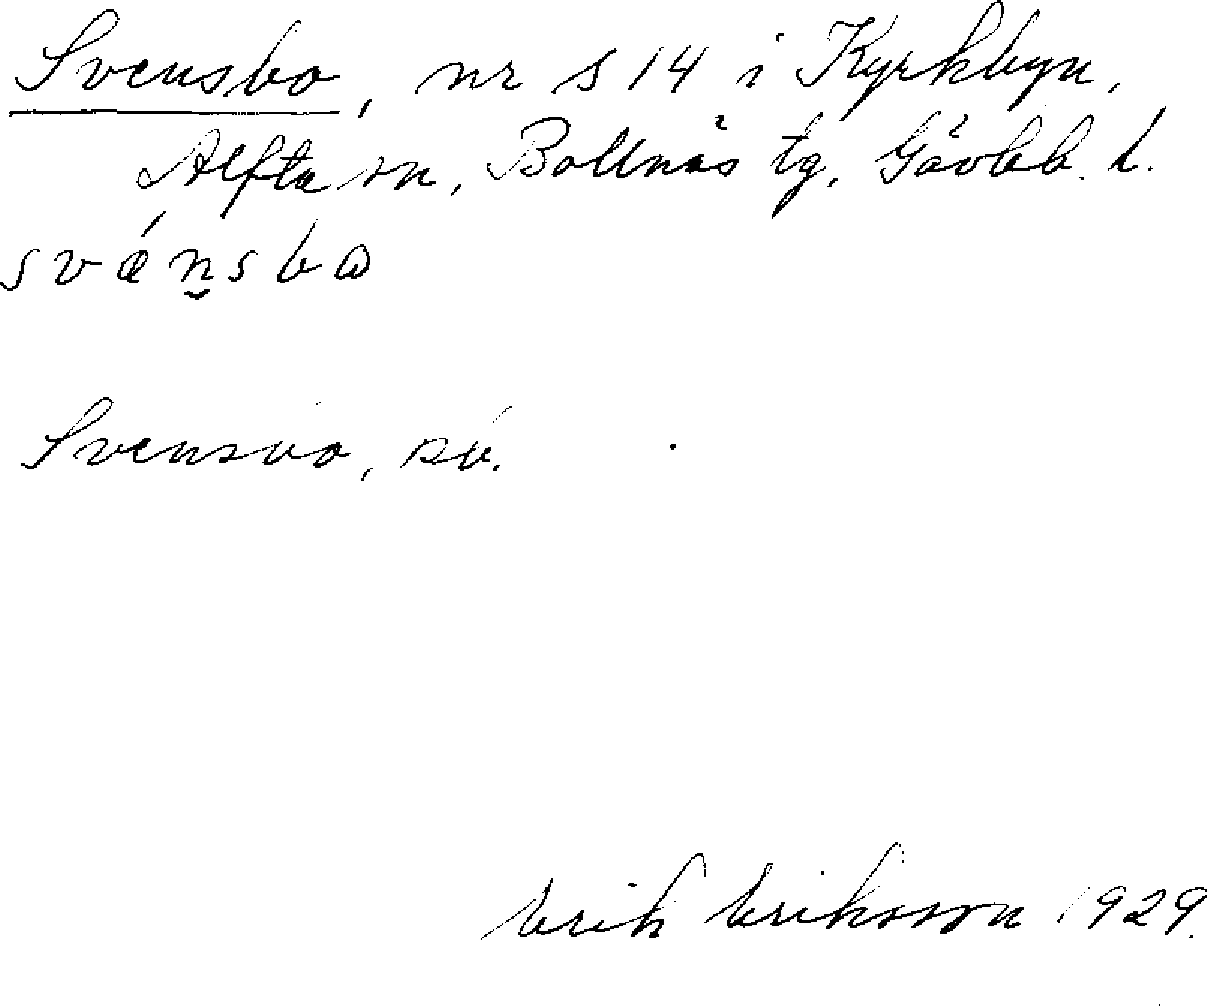 Svensbo, nr s 14 i Kyrkbyn,
Alfta sn, Bollnäs tg, Gävleb. l.
svǽn̮sbɷ
Svensbo, sv.
Erik Eriksson 1929.